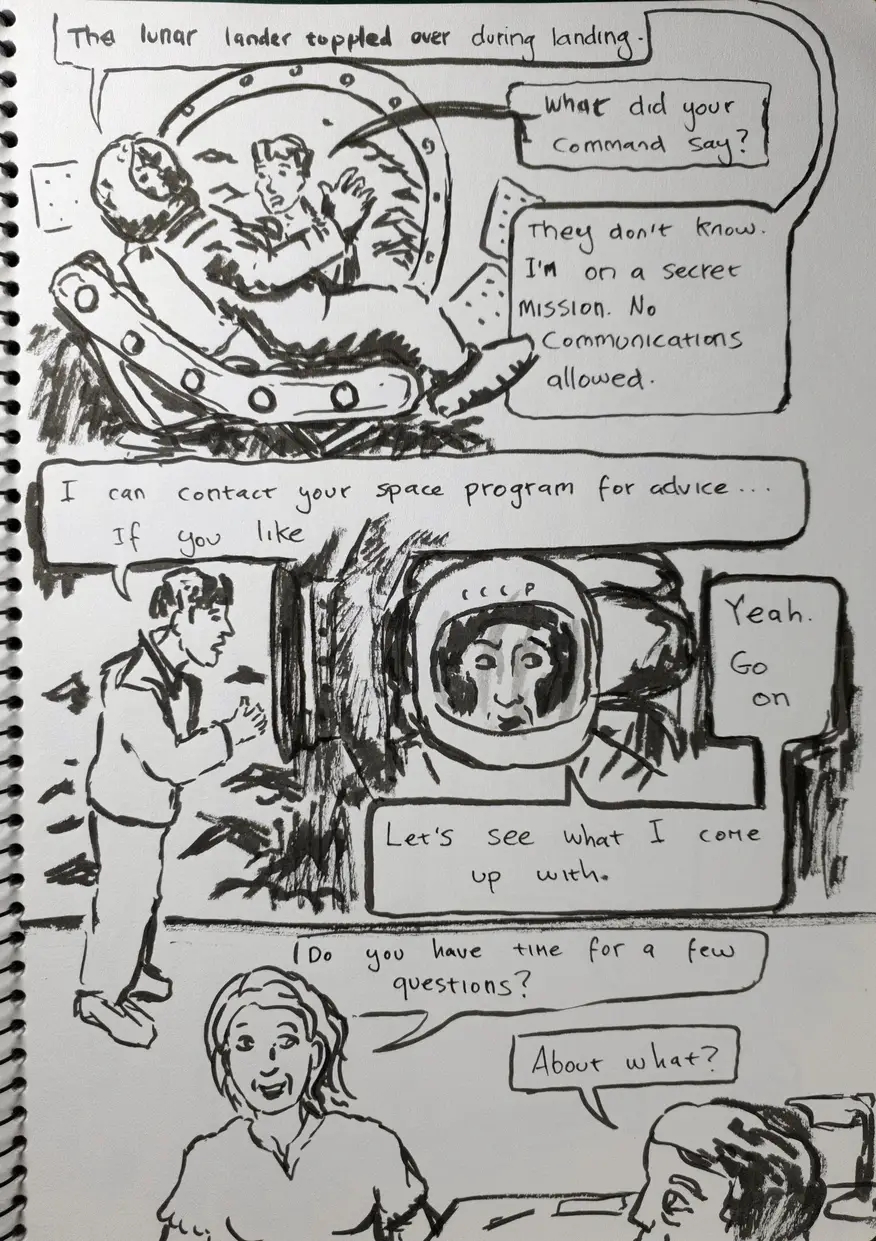 The lunar lander toppled over during landing.
What did your
Command say?
They don't know.
I'm on a secret
mission. No
Communications
allowed.
I can contact your space program for advice...
If you like
CCCP
Yeah.
Go
on
Let's see what I come
up with.
Do you have time for a few
questions?
About what?